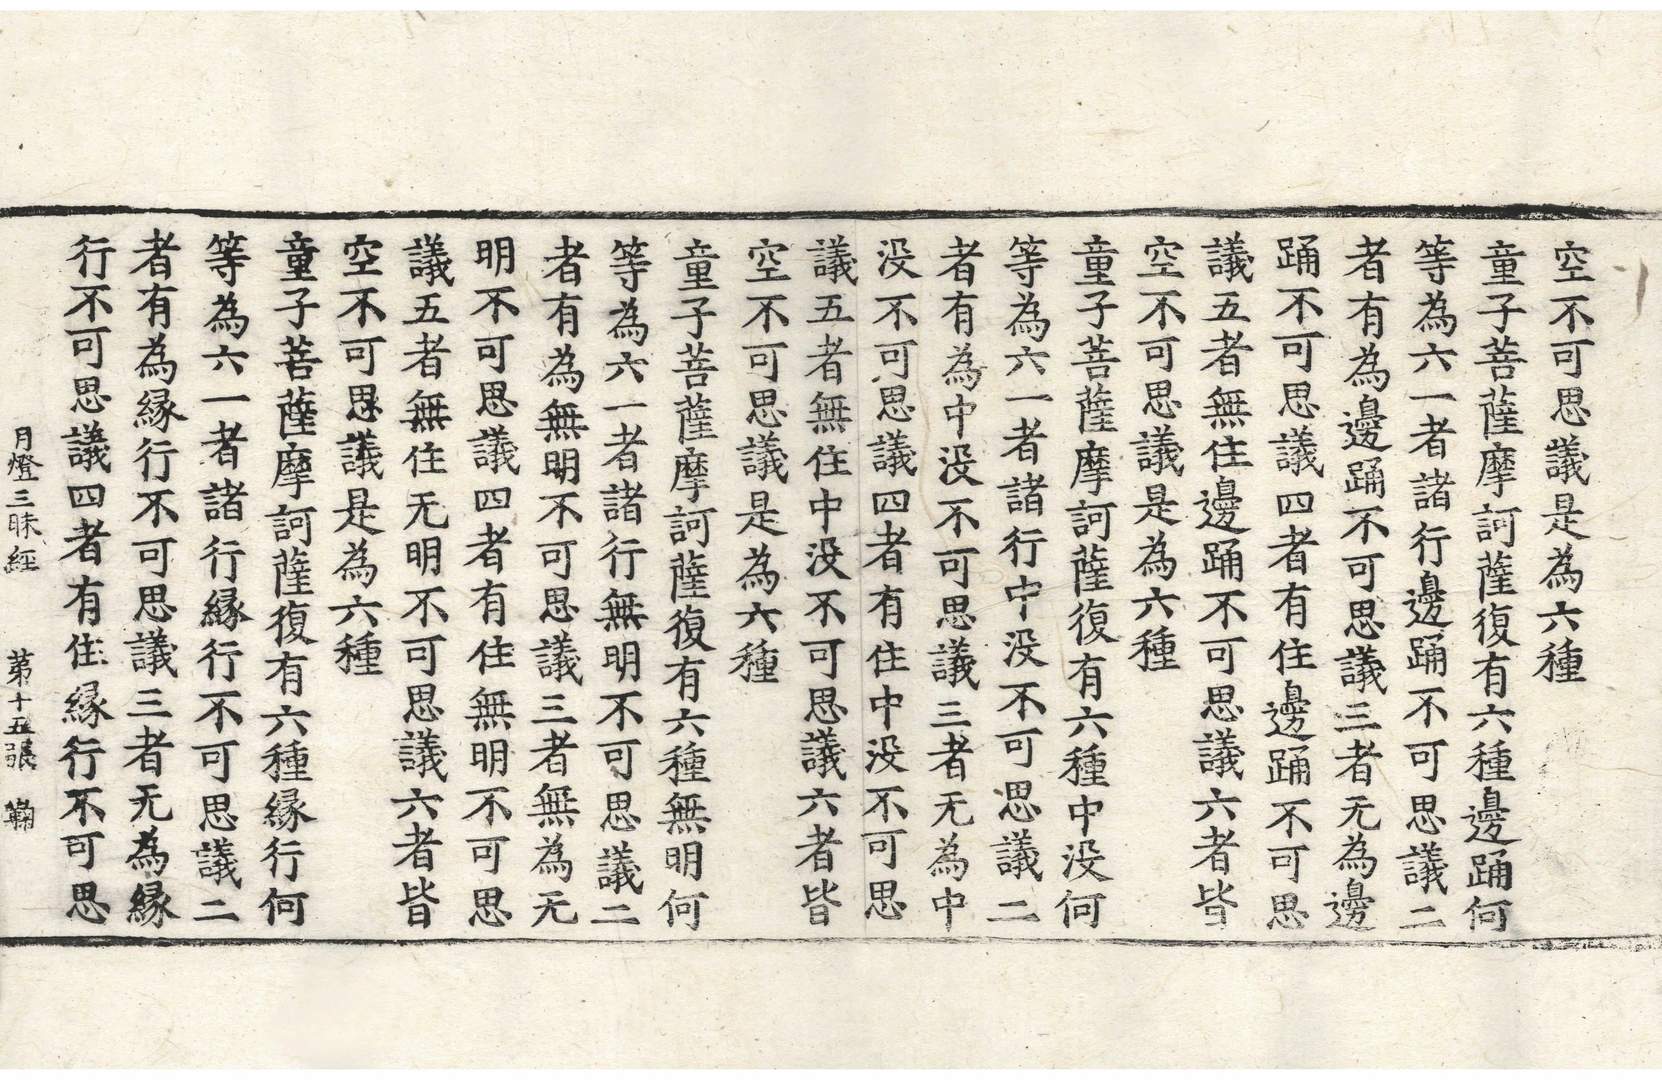 空不可思議是為六種
童子菩薩摩訶薩復有六種邊踊何
等為六一者諸行邊踊不可思議二
者有為邊踊不可思議三者无為邊
踊不可思議四者有住邊踊不可思
議五者無住邊踊不可思議六者皆
空不可思議是為六種
童子菩薩摩訶薩復有六種中没何
等為六一者諸行中没不可思議二
者有為中没不可思議三者无為中
没不可思議四者有住中没不可思
議五者無住中没不可思議六者皆
空不可思議是為六種
童子菩薩摩訶薩復有六種無明何
等為六一者諸行無明不可思議二
者有為無明不可思議三者無為无
明不可思議四者有住無明不可思
議五者無住无明不可思議六者皆
空不可思議是為六種
童子菩薩摩訶薩復有六種縁行何
等為六一者諸行縁行不可思議二
者有為縁行不可思議三者无為縁
行不可思議四者有住縁行不可思
月燈三昧經 第十五張 鞠